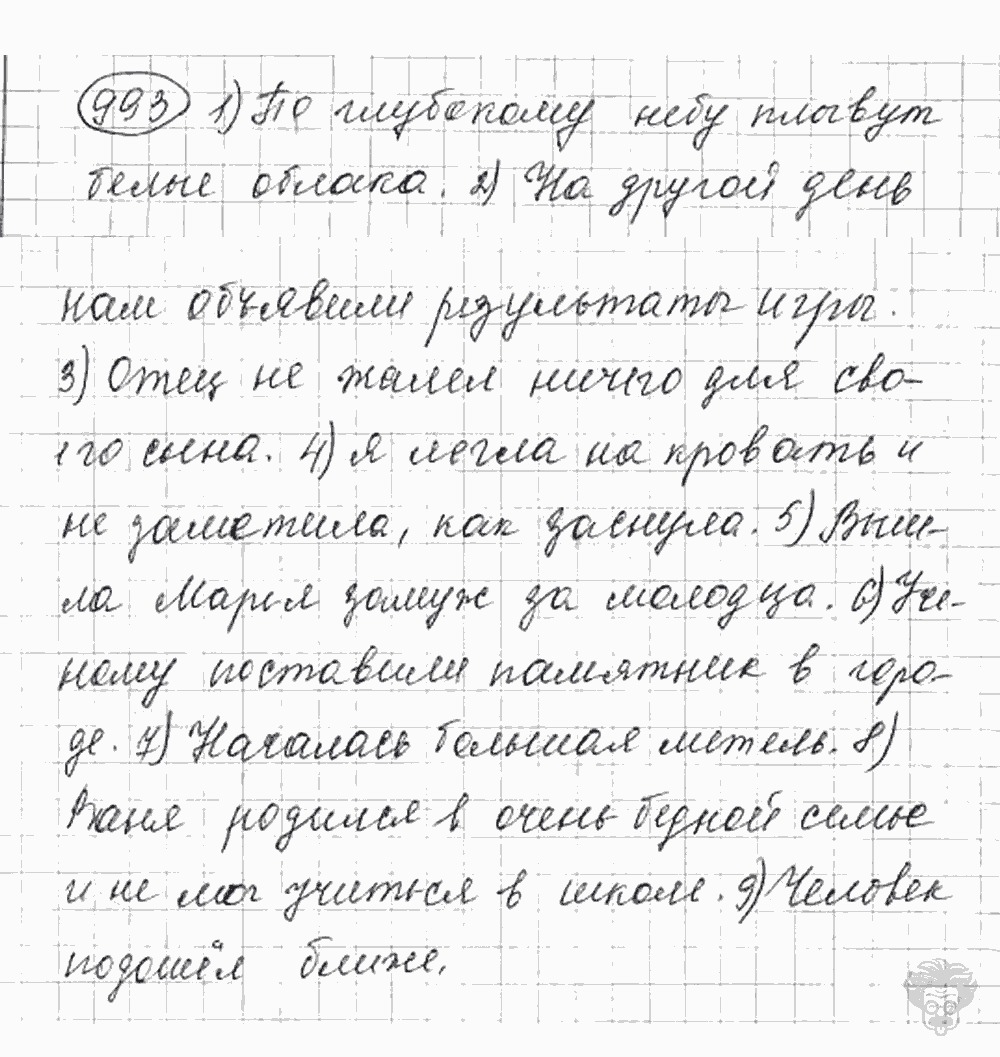 993 1) По глубокому небу плывут
белые облака. 2) На другой день
нам объявили результаты игры.
3) Отец не жалел ничего для сво-
его сына. 4) Я легла на кровать и
не заметила, как заснула. 5) Выш-
ла Марья замуж за молодца. 6) Уче-
ному поставили памятник в горо-
де. 7) Началась большая метель. 8)
Ваня родился в очень бедной семье
и не мог учиться в школе. 9) Человек
подошёл ближе.